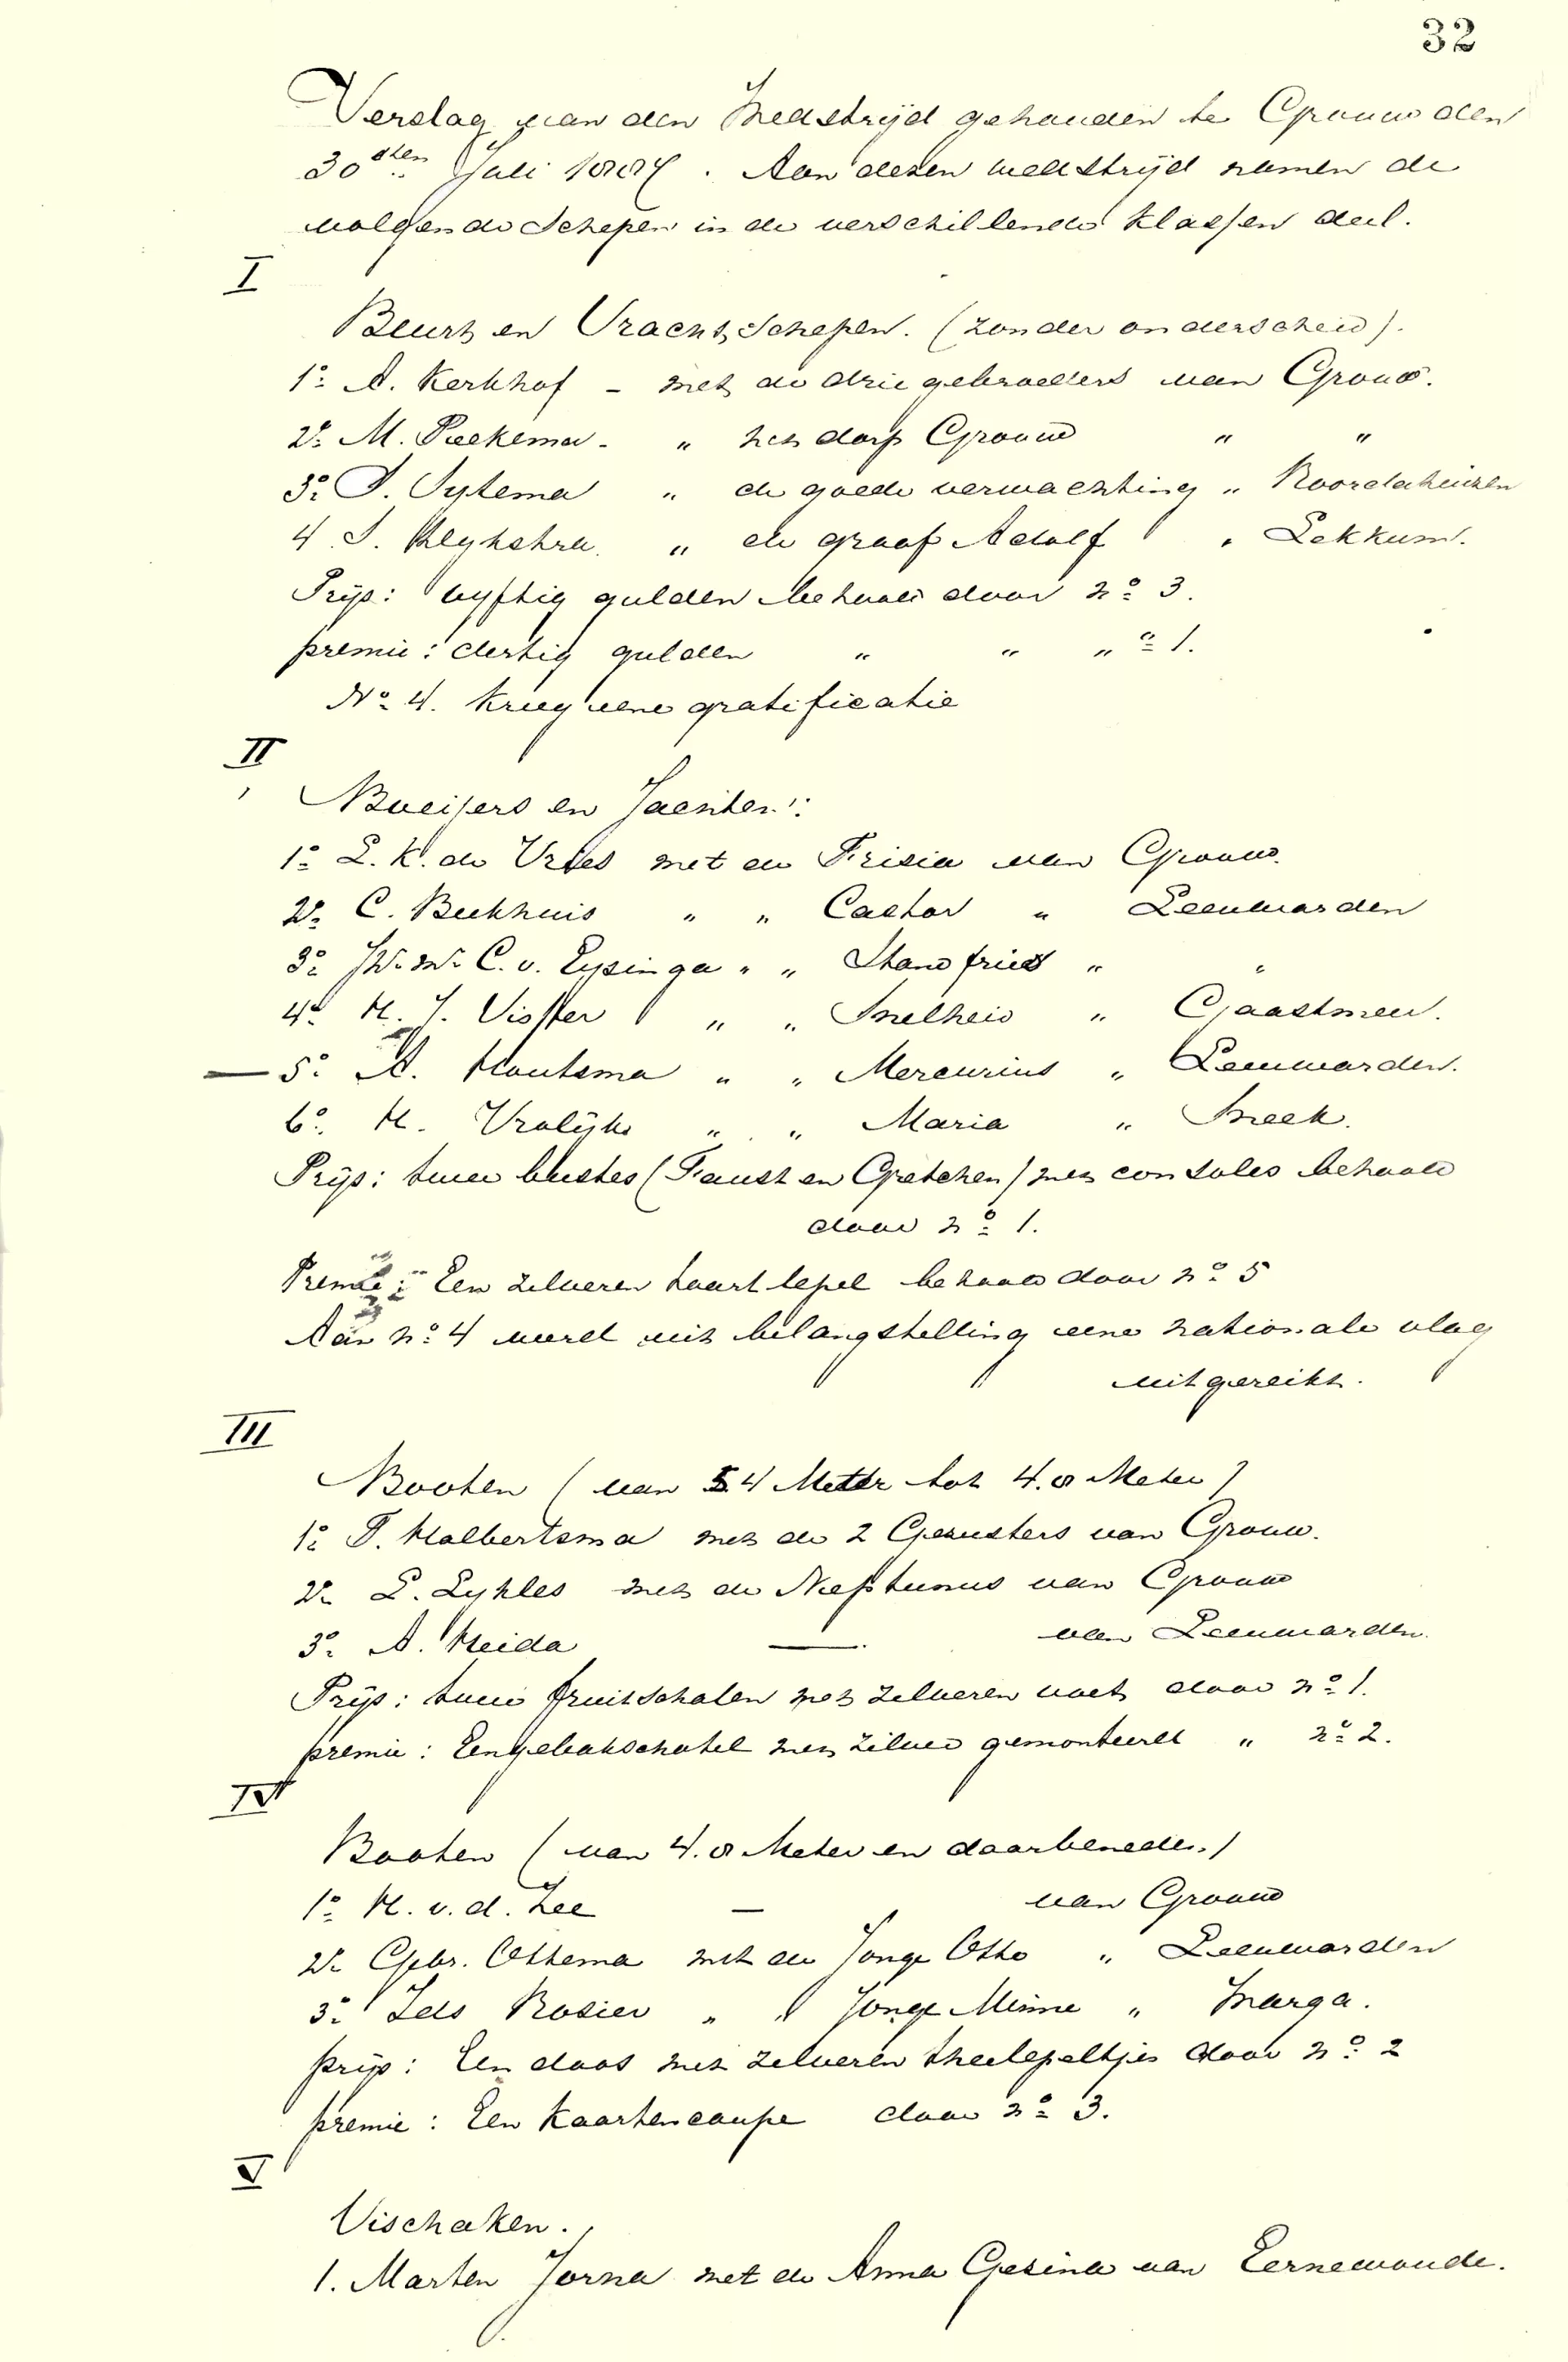 32
Verslag van den Wedstrijd gehouden te Grouw den
30sten Juli 188 . Aan dezen wedstrijd namen de
volgende Schepen in de verschillende klassen deel.
I
Beurt en Vracht Schepen. (zonder onderscheid).
1o A. Kerkhof - met de drie gebroeders van Grouw.
2o M. - " het dorp Grouw " "
3o Sytema " de goede verwachting " Noordscheichen
4 " de graaf Adolf " Lekkum.
Prijs: vyftig gulden behaald door no 3.
premie: dertig gulden " " " o 1.
No 4. kreeg eene gratificatie
II
Boeijers en Jachten:
1o L. K. de Vries met de Frisia van Grouw.
2o C. Beekhuis " " Castor " Leeuwarden
3o Jhr. Mr. C. v. Eysinga " " Standfries " "
4o H. J. Visser " " Snelheid " Gaastmeer.
5o A. Houtsma " " Mercurius " Leeuwarden.
6o H. Vrolijk " " Maria " Sneek.
Prijs: twee bustes (Faust en Gretchen) met consoles behaald
door no 1.
Premie: Een zilveren taartlepel behaald door no 5
Aan no 4 werd uit belangstelling eene nationale vlag
uitgereikt.
III
Booten (van 5.4 Meter tot 4.8 Meter)
1o P. Halbertsma met de 2 Gezusters van Grouw.
2o L. Lykles met de Neptunus van Grouw
3o A. Heida — van Leeuwarden.
Prijs: twee fruitschalen met zilveren voet door no 1.
premie: Een gebakschotel met zilver gemonteerd " no 2.
IV
Booten (van 4.8 Meter en daarbeneden.)
1o H. v. d. Zee — van Grouw
2o Gebr. Ottema met de Jonge Otto " Leeuwarden
3o Rosier " " Jonge Minne " Warga.
prijs: Een doos met zilveren theelepeltjes door no 2
premie: Een kaartencoupe door no 3.
V
Vischaken.
1. Marten Jorna met de Anna Gesina van Eernewoude.